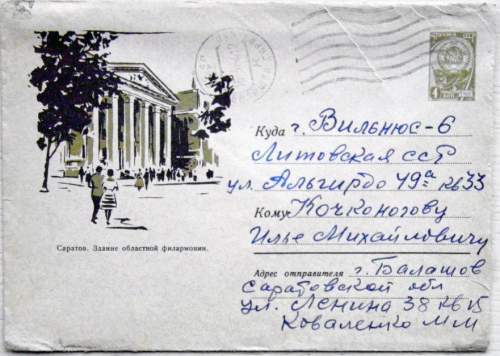 Куда г. Вильнюс-6
Литовская сср
ул. Альгирдо 49а кв 33
Кому Кочконогову
Илье Михайловичу
Саратов. Здание областной филармонии.
Адрес отправителя г. Балашов
Саратовской обл
ул. Ленина 38 кв 15
Коваленко М М